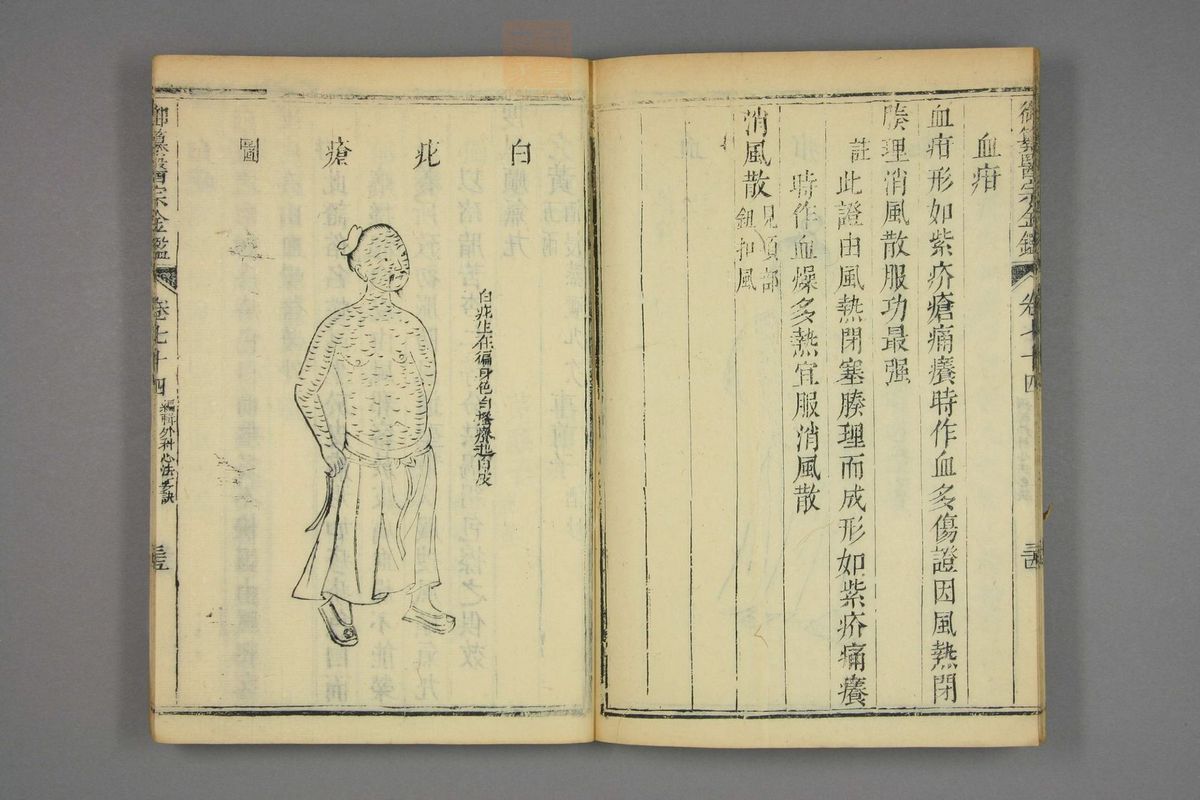 御纂醫宗金鑑
卷七十四
血疳
血疳形如紫疥瘡痛癢時作血多傷證因風熱閉
腠理消風散服功最强
註此證由風熱閉塞腠理而成形如紫疥痛癢
時作血燥多熱宜服消風散
消風散見項部
鈕扣風
白
疕
瘡
圖
白疕生在徧身色白搔癢起白皮
御纂醫宗金鑑
卷七十四
編輯外科心法要訣